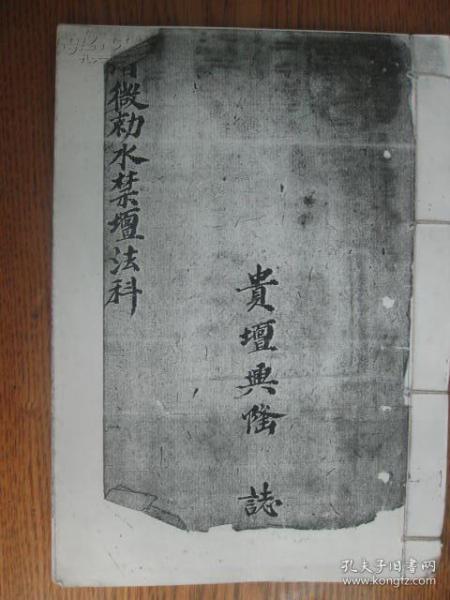 微勅水禁壇法科
貴壇興隆 誌
孔夫子旧书网
www.kongfz.com